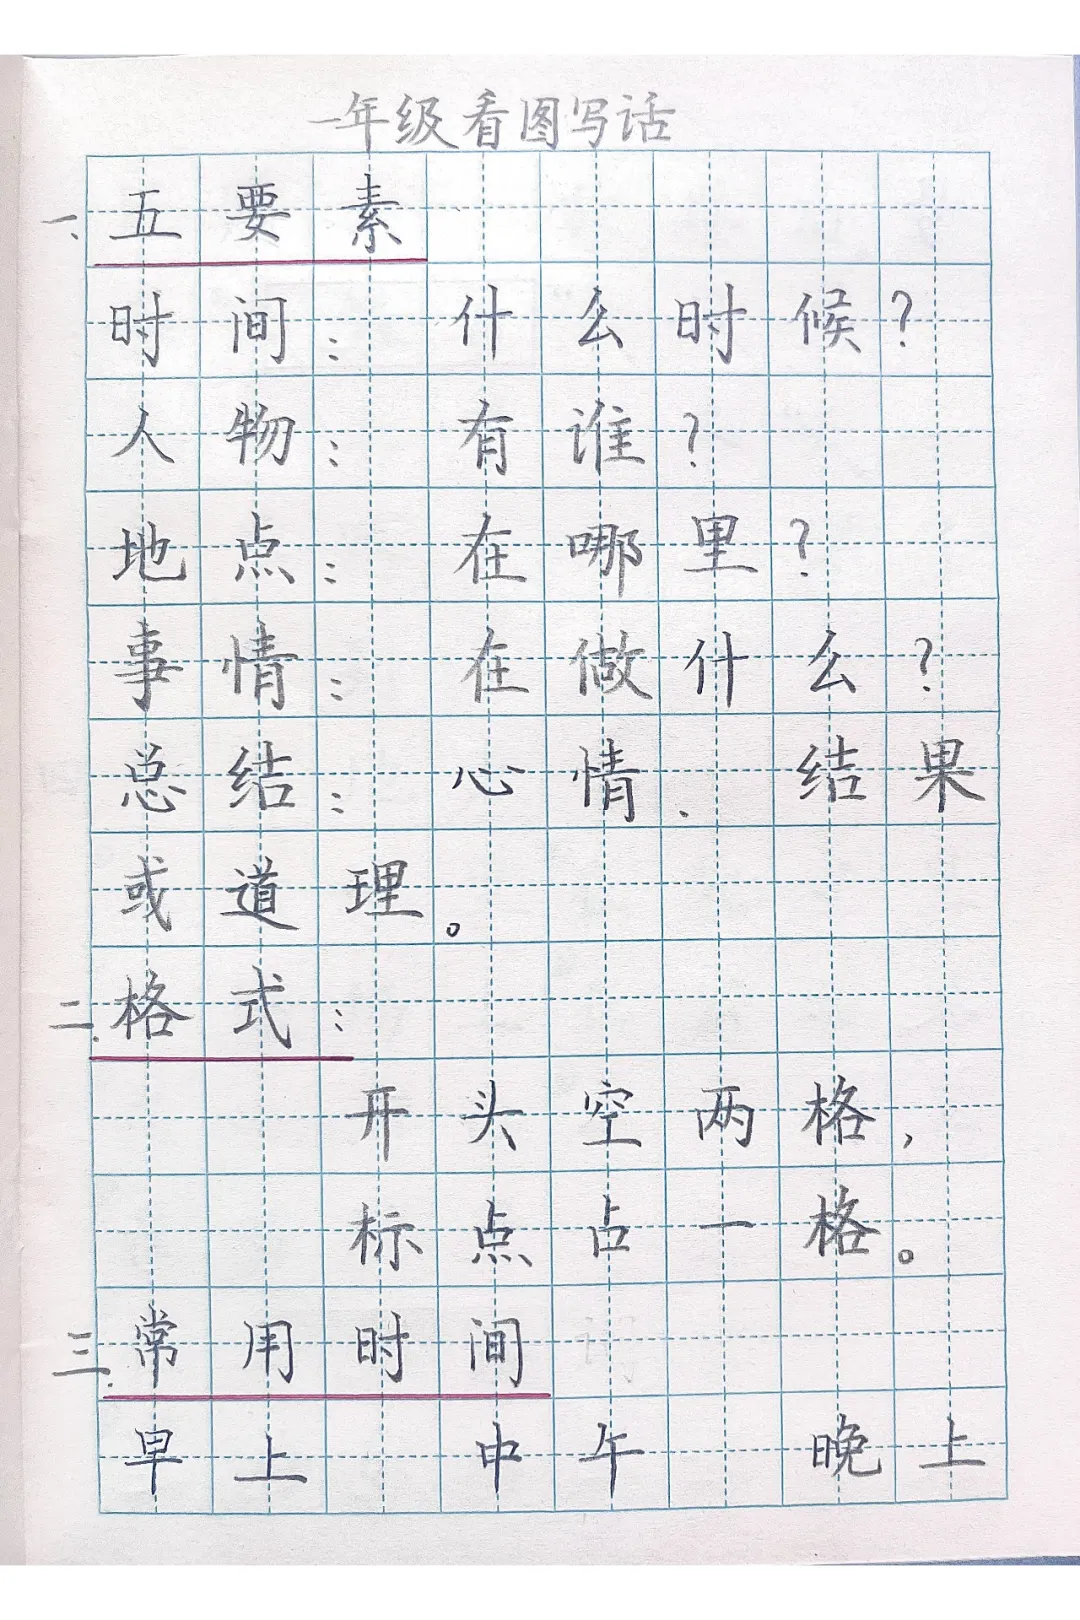 一年级看图写话
一、五要素
时间：什么时候？
人物：有谁？
地点：在哪里？
事情：在做什么？
总结：心情、结果
或道理。
二、格式：
开头空两格，
标点占一格。
三、常用时间
早上 中午 晚上